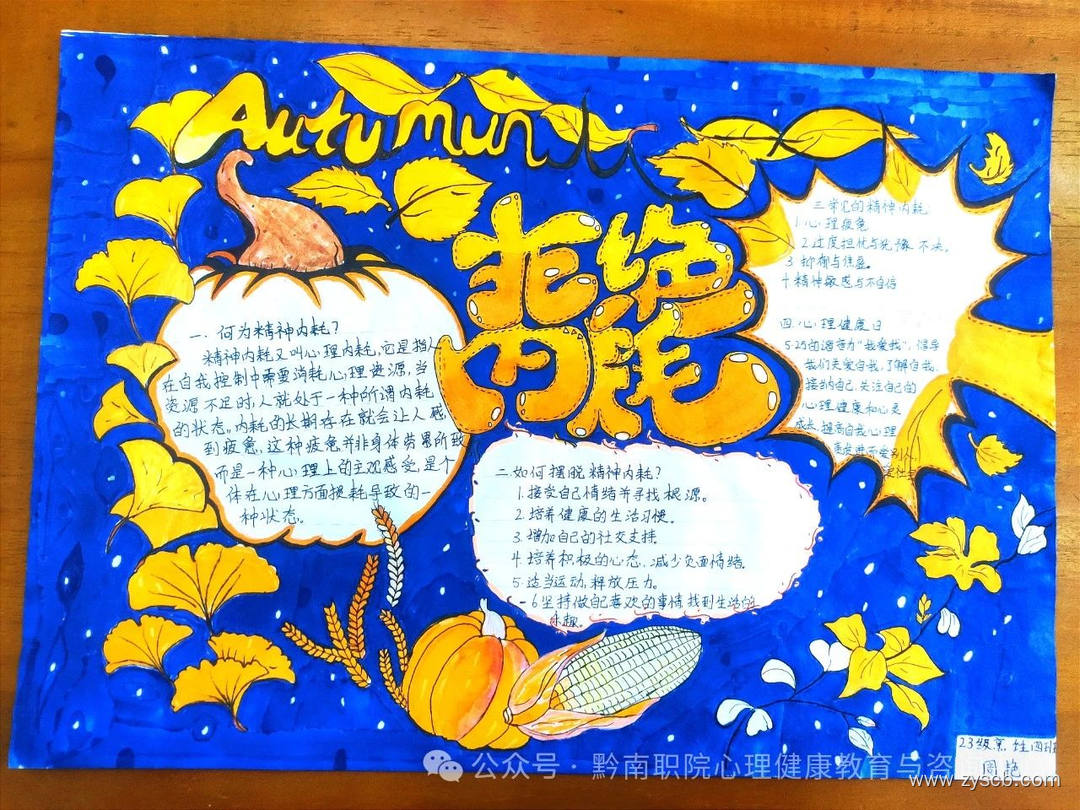 Autumun
拒绝
内耗
一、何为精神内耗?
精神内耗又叫心理内耗,它是指人
在自我控制中需要消耗心理资源,当
资源不足时,人就处于一种所谓内耗
的状态。内耗的长期存在就会让人感
到疲惫,这种疲惫并非身体劳累所致
而是一种心理上的主观感受,是个
体在心理方面损耗导致的一
种状态。
二 如何摆脱精神内耗?
1.接受自己情绪并寻找根源。
2.培养健康的生活习惯。
3.增加自己的社交支持.
4.培养积极的心态,减少负面情绪.
5.适当运动,释放压力.
6 坚持做自己喜欢的事情,找到生活的
乐趣。
三常见的精神内耗
1.心理疲惫
2.过度担忧与犹豫不决。
3.抑郁与焦虑。
4 精神敏感与不自信
四.心理健康日
5·25的谐音为"我爱我",倡导
我们关爱自我,了解自我,
接纳自己,关注自己的
心理健康和心灵
成长,提高自我心理
23级烹饪四班
周艳
公众号·黔南职院心理健康教育与咨
www.zyscb.com